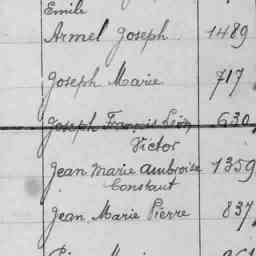 Emile
Armel Joseph 1489
Joseph Marie 717
Joseph François Léon 630
Victor
Jean Marie Ambroise 1359
Constant
Jean Marie Pierre 837